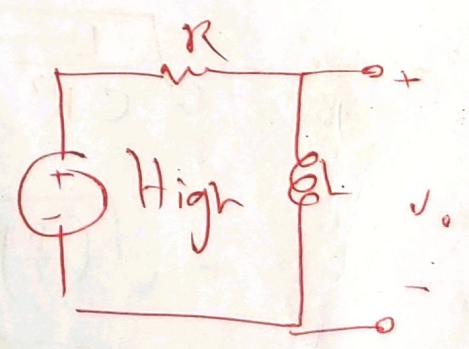 R
+
+
High
L
V₀
-
-